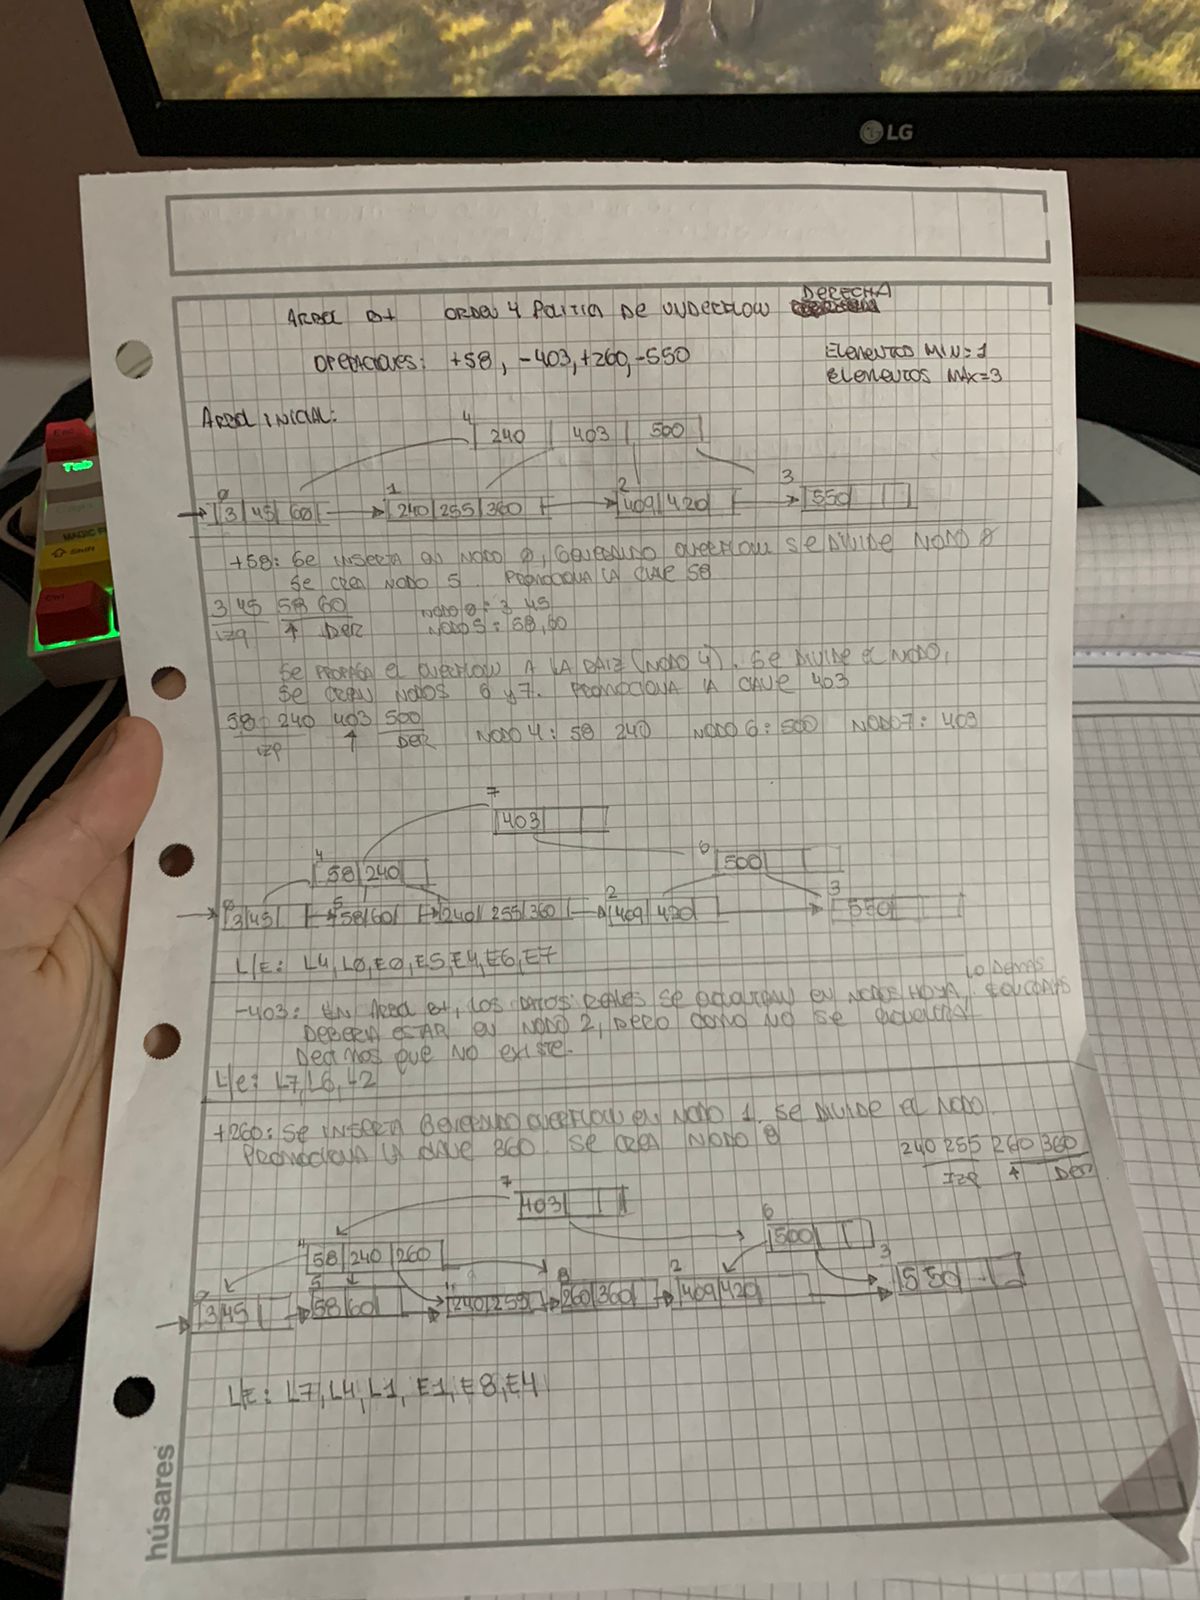 LG
Esc
Tab
MAGIC F
Shift
Ctrl
ARBOL B+ ORDEN 4 POLITICA DE UNDERFLOW DERECHA
OPERACIONES: +58, -403, +260, -550
ELEMENTOS MIN=1
ELEMENTOS MAX=3
ARBOL INICIAL:
4
240 403 500
0 1 2 3
3 45 60 240 255 360 409 420 550
+58: SE INSERTA EN NODO 0, GENERANDO OVERFLOW SE DIVIDE NODO 0
SE CREA NODO 5. PROMOCIONA LA CLAVE 58
3 45 58 60 NODO 0: 3 45
IZQ ↑ DER NODO 5: 58, 60
SE PROPAGA EL OVERFLOW A LA RAIZ (NODO 4). SE DIVIDE EL NODO,
SE CREAN NODOS 6 y 7. PROMOCIONA LA CLAVE 403
58 240 403 500
IZQ ↑ DER NODO 4: 58 240 NODO 6: 500 NODO 7: 403
7
403
4 6
58 240 500
0 5 2 3
3 45 58 60 240 255 360 409 420 550
L/E: L4, L0, E0, E5, E4, E6, E7
-403: EN ARBOL B+, LOS DATOS REALES SE ENCUENTRAN EN NODOS HOJA, LO DEMAS SON COPIAS
DEBERIA ESTAR EN NODO 2, PERO COMO NO SE ENCUENTRA
DECIMOS QUE NO EXISTE.
L/E: L7, L6, L2
+260: SE INSERTA GENERANDO OVERFLOW EN NODO 1. SE DIVIDE EL NODO
PROMOCIONA LA CLAVE 360. SE CREA NODO 8
240 255 260 360
IZQ ↑ DER
7
403
4 6
58 240 260 500
0 5 1 8 2 3
3 45 58 60 240 255 260 360 409 420 550
L/E: L7, L4, L1, E1, E8, E4
húsares